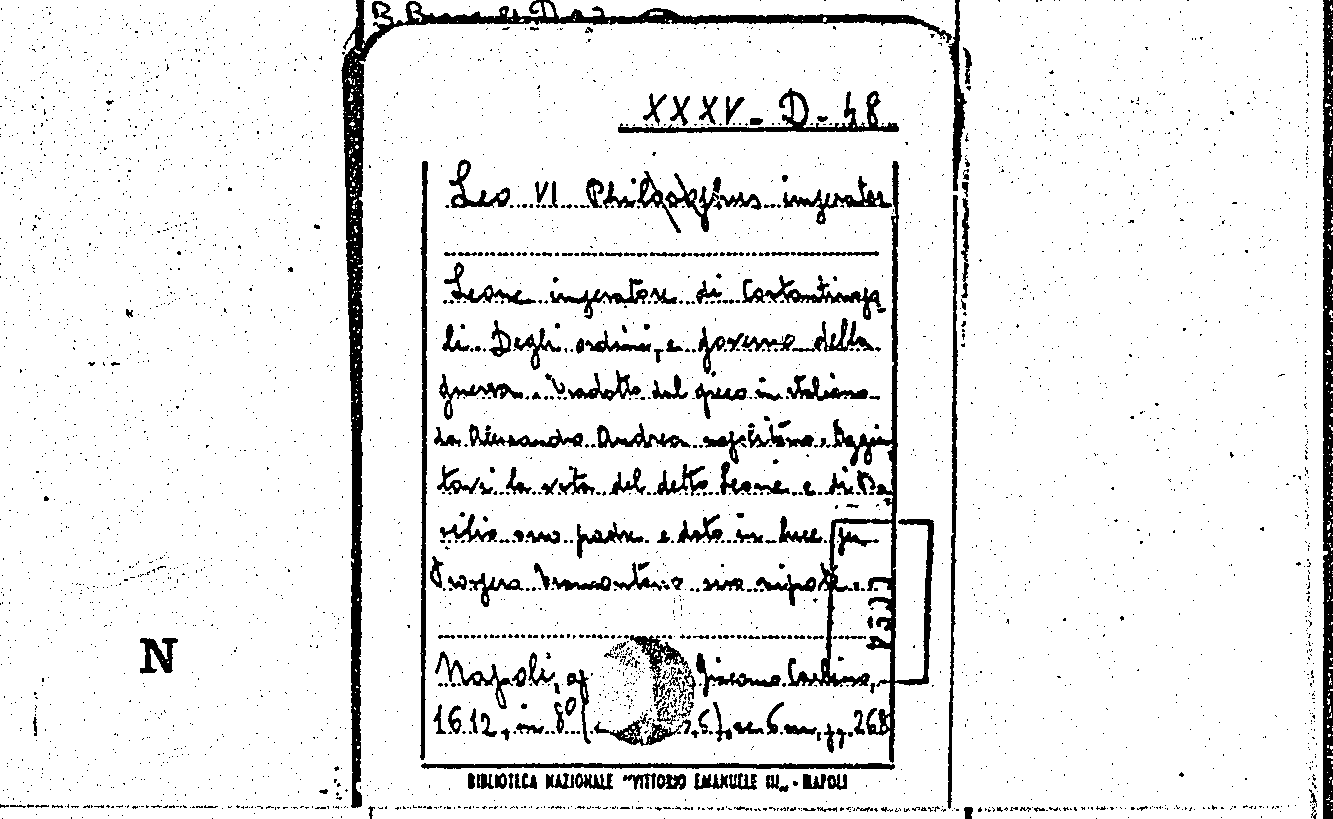 XXXV-D-48
Leo VI Philosophus imperator
Leone imperatore di Costantinopo
li. Degli ordini, e governo della
guerra. Tradotto dal greco in italiano
da Alessandro Andrea napolitano. Aggiun
tavi la vita del detto Leone e di Ba
silio suo padre e dato in luce per
Prospero suo nipote.
Napoli, ap Giacomo Carlino,
1612, in 8º( 268
BIBLIOTECA NAZIONALE "VITTORIO EMANUELE III" - NAPOLI
N